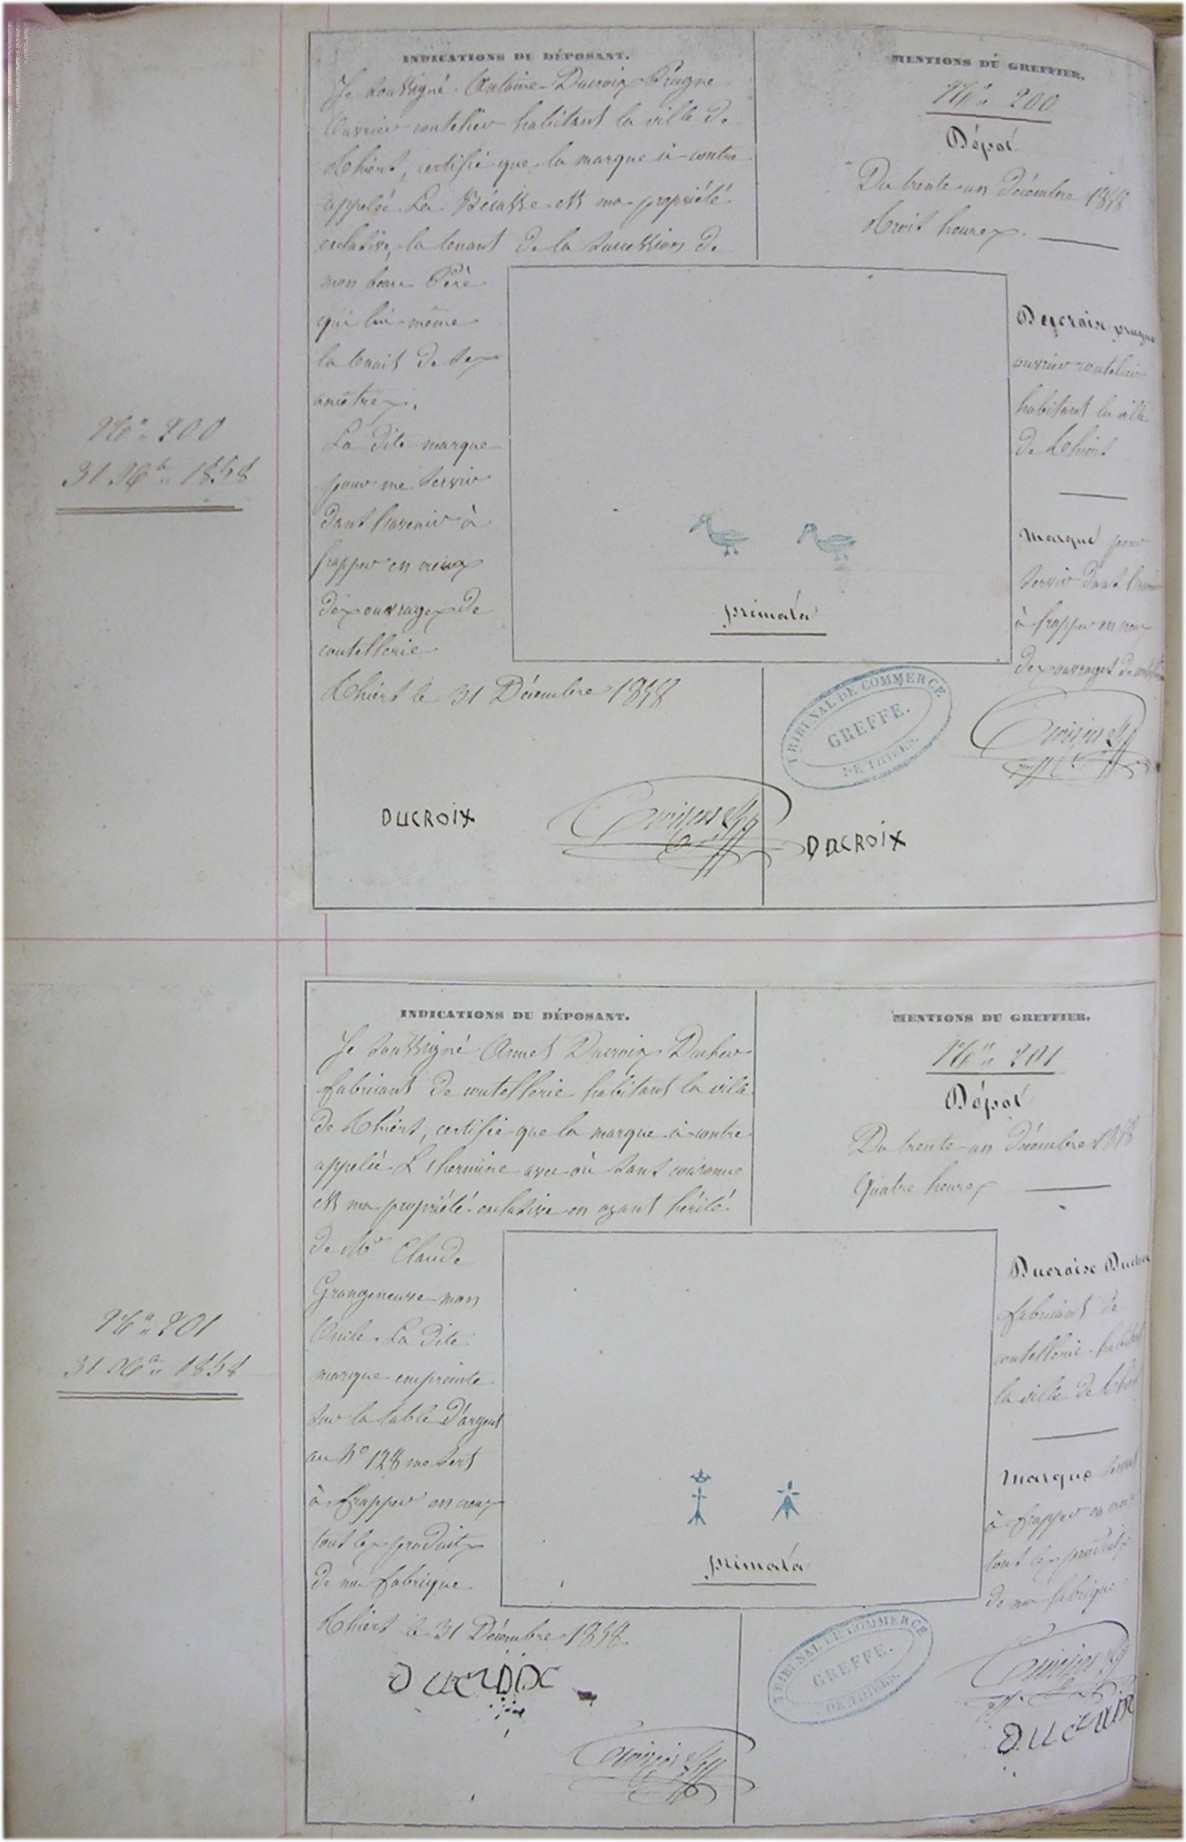 INDICATIONS DU DÉPOSANT.
Je soussigné Antoine Ducroix Prugne
Ouvrier coutelier habitant la ville de
Thiers, certifie que la marque ci-contre
appelée La Bécasse est ma propriété
exclusive, la tenant de la succession de
mon beau Père
qui lui-même
la tenait de ses
ancêtres.
La dite marque
pour me servir
dans l'avenir à
frapper en creux
des ouvrages de
coutellerie
Thiers le 31 Décembre 1858
DUCROIX
MENTIONS DU GREFFIER.
No 200
Dépot
Du trente-un décembre 1858
trois heures.
Ducroix prugne
ouvrier coutelier
habitant la ville
de Thiers
Marque pour
servir dans l'avenir
à frapper en creux
des ouvrages de
primata
TRIBUNAL DE COMMERCE.
GREFFE.
DE THIERS.
DUCROIX
No 200
31 Xbre 1858
INDICATIONS DU DÉPOSANT.
Je soussigné Annet Ducroix Ducher
fabricant de coutellerie habitant la ville
de Thiers, certifie que la marque ci-contre
appelée L'hermine avec où sans couronne
est ma propriété exclusive en ayant hérité
de Mr Claude
Grangeneuve mon
Oncle. La dite
marque empreinte
sur la table d'argent
au No 128 me sert
à frapper en creux
tous les produits
de ma fabrique
Thiers le 31 Décembre 1858.
DUCROIX
MENTIONS DU GREFFIER.
No 201
Dépot
Du trente-un décembre 1858
Quatre heures
Ducroix Ducher
fabricant de
coutellerie habitant
la ville de Thiers
Marque servant
à frapper en creux
tous les produits
de ma fabrique
primata
TRIBUNAL DE COMMERCE
GREFFE.
DE THIERS.
DUCROIX
No 201
31 Xbre 1858